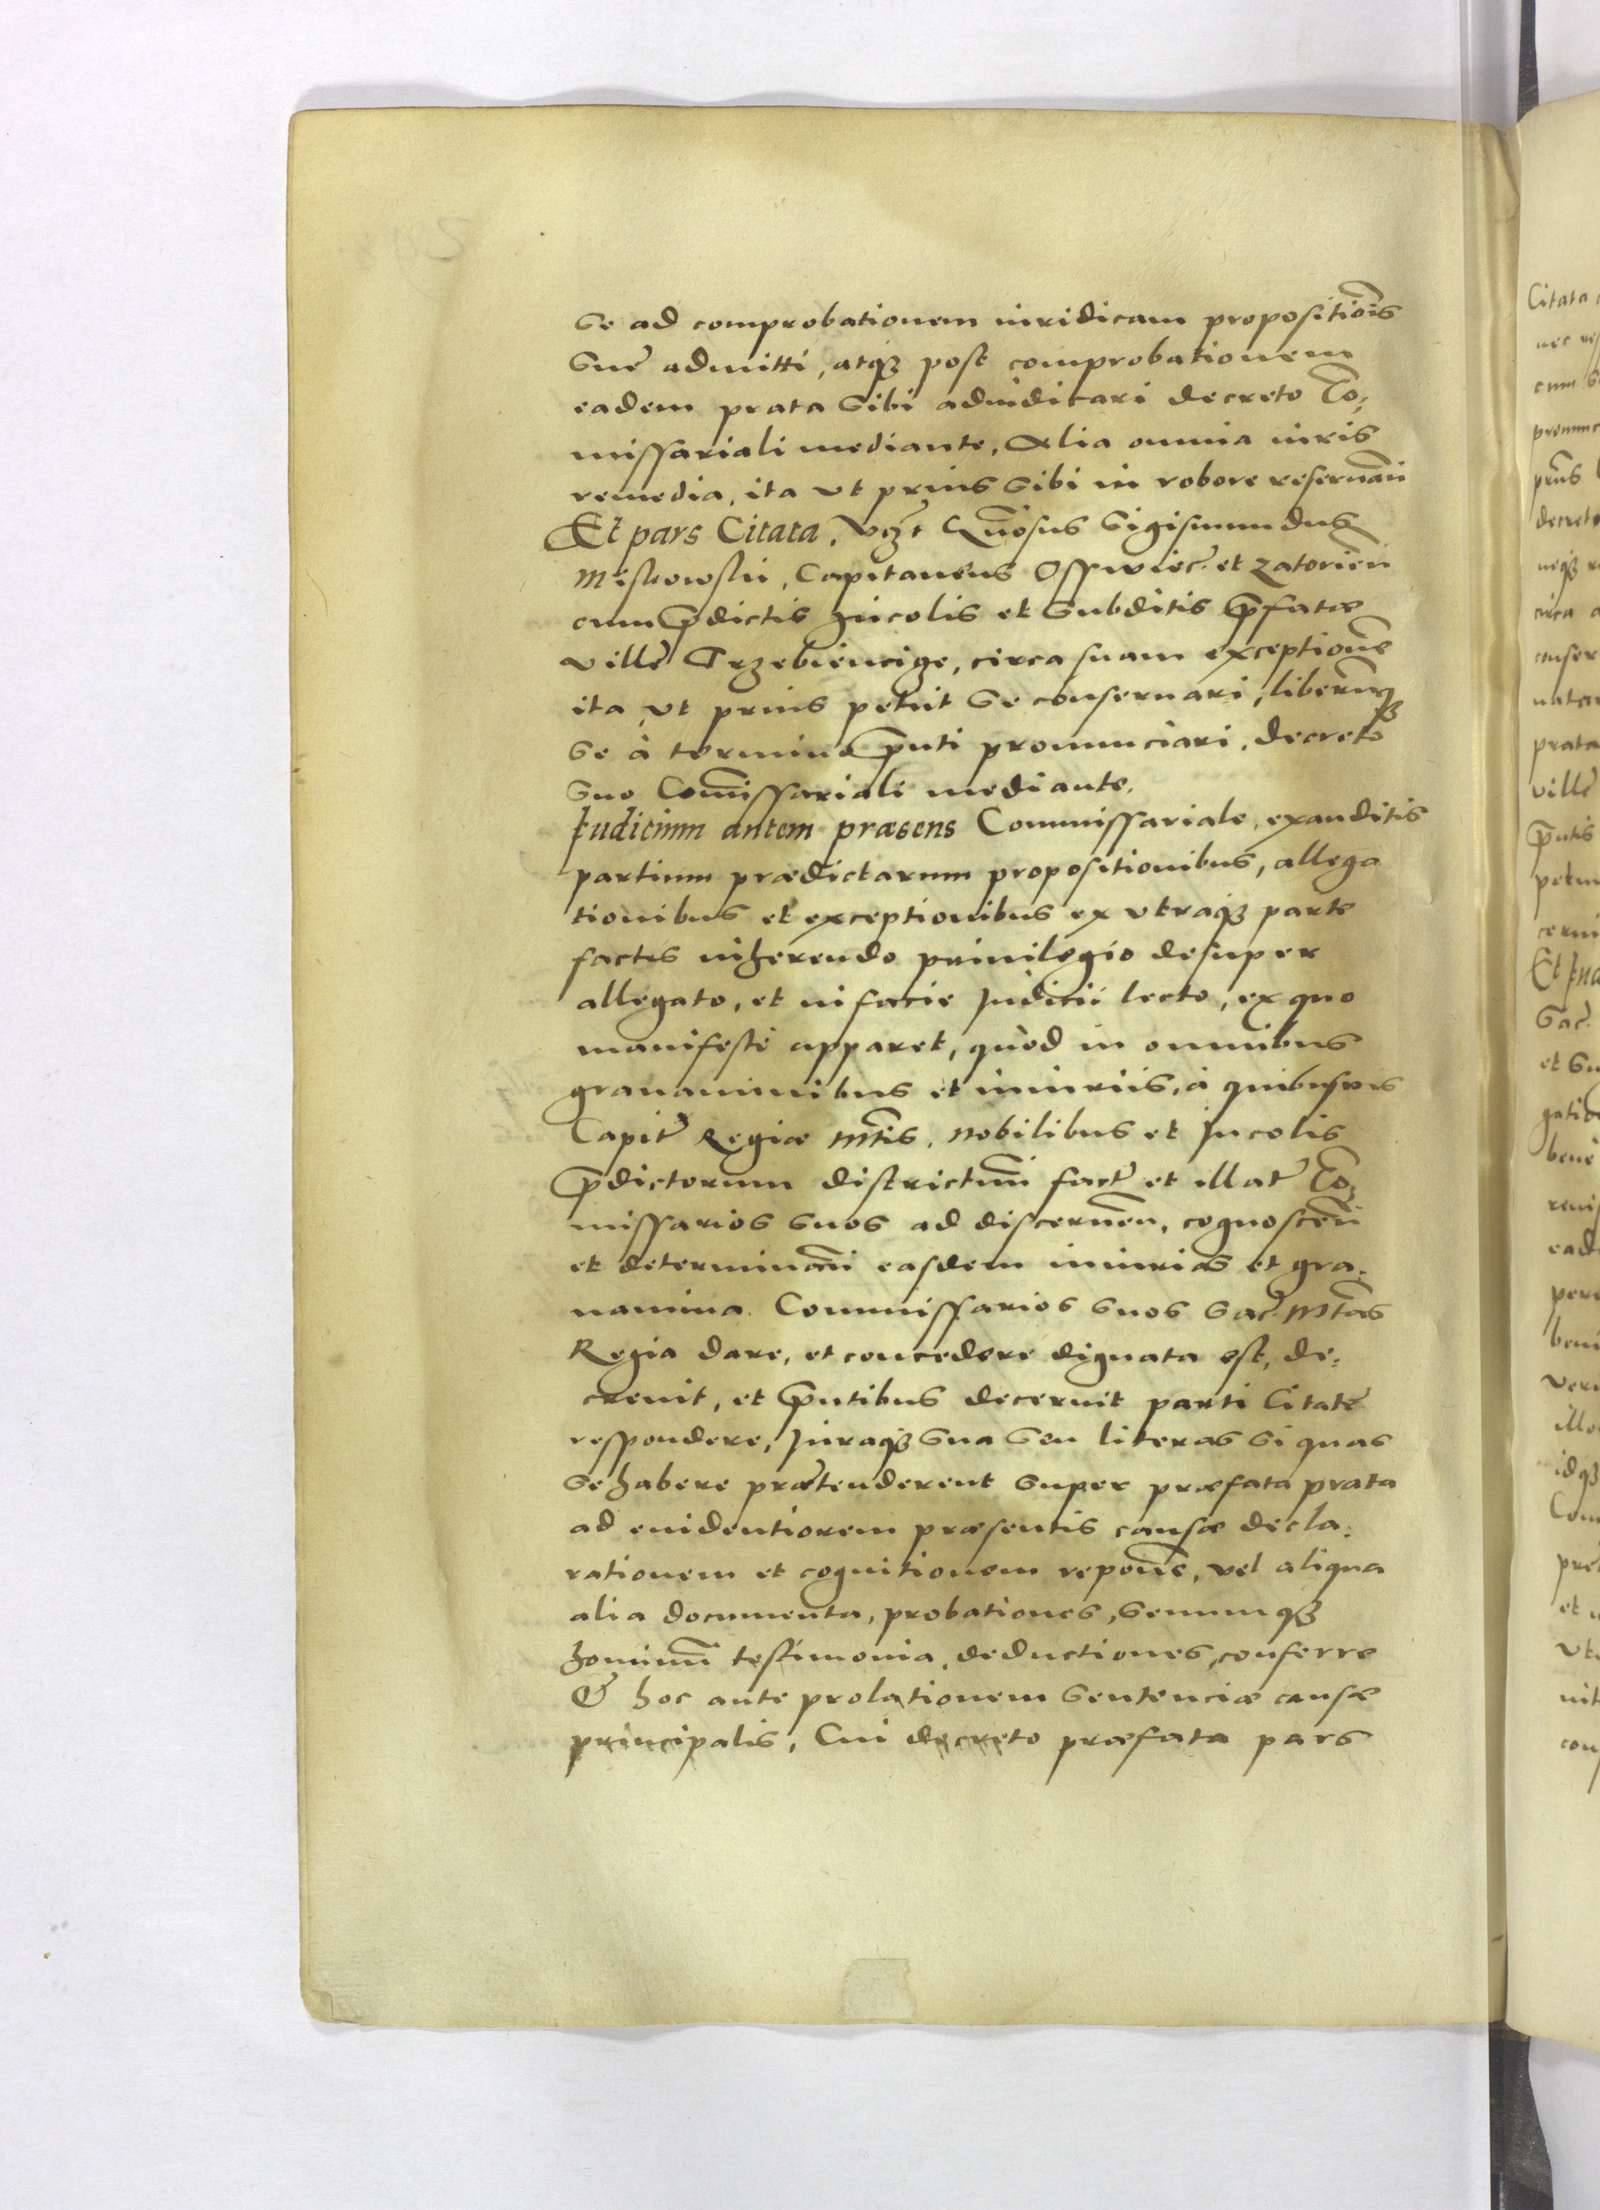 se ad comprobationem iuridicam propositiõis
suę admitti, atq3 post comprobationem
eadem prata sibi adiudicari decreto Cõ,
missariali mediante, Alia omnia iuris
remedia, ita vt prius sibi in robore reseruañ
Et pars Citata, Vcz Gñosus Sigismundus
Miskowskii, Capitaneus Osswiec. et Zatorień
cum p̃dictis Incolis et subditis p̃fatæ
villę Trzebieńcige, circa suam exceptionẽ
ita vt prius petiit se conseruari, liberũq3
se à termino p̃nti pronunciari, decreto
suo Com̃issariali mediante.
Iudicium autem præsens Commissariale, exauditis
partium prædictarum propositionibus, allega
tionibus et exceptionibus ex vtraq3 parte
factis inherendo priuilegio desuper
allegato, et in facie Iudicii lecto, ex quo
manifestè apparet, quòd in omnibus
grauaminibus et iniuriis, à quibusuis
Capit̃ Regiæ Mt̃is, nobilibus et Incolis
p̃dictorum districtuũ fact̃ et illat̃ Cõ,
missarios suos ad discerneñ, cognosceñ
et determinañ easdem iniurias et gra,
uamina Commissarios suos Sac. Mt̃as
Regia dare, et concedere dignata est, de,
creuit, et p̃ntibus decernit parti Citatę
respondere, Iuraq3 sua seu literas si quas
se habere prætenderent super præfata prata
ad euidentiorem præsentis causæ decla,
rationem et cognitionem reponẽ, vel aliqua
alia documenta, probationes, senumq3
hominũ testimonia, deductiones, conferre
& hoc ante prolationem sentenciæ causæ
principalis, Cui decreto præfata pars